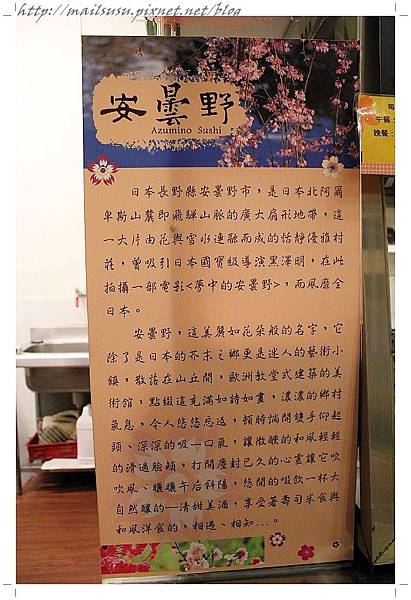 http://mailsusu.pixnet.net/blog
安曇野
Azumino Sushi
日本長野縣安曇野市，是日本北阿爾
卑斯山麓即飛驒山脈的廣大扇形地帶，這
一大片由花與雪水連融而成的恬靜優雅村
莊，曾吸引日本國寶級導演黑澤明，在此
拍攝一部電影<夢中的安曇野>，而風靡全
日本。
安曇野，這美麗如花朵般的名字，它
除了是日本的芥末之鄉更是迷人的藝術小
鎮，散落在山丘間，歐洲教堂式建築的美
術館，點綴這充滿如詩如畫，濃濃的鄉村
氣息，令人悠悠忘返，頓時惦開雙手仰起
頭、深深的吸一口氣，讓微醺的和風輕輕
的滑過臉頰，打開塵封已久的心靈讓它吹
吹風、曬曬午后斜陽，悠閒的吸飲一杯大
自然釀的—清甜美酒，享受著壽司米食與
和風洋食的，相遇、相知...。
午餐：
晚餐：